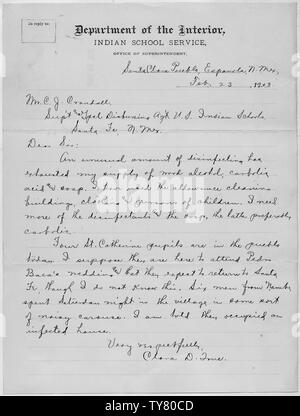 In reply to:
Department of the Interior,
INDIAN SCHOOL SERVICE,
OFFICE OF SUPERINTENDENT,
Santa Clara Pueblo, Espanola, N. Mex.
Feb. 23 , 1903
Mr. C. J. Crandall,
Sup't & Spcl Disbursing Agt. U. S. Indian Schools
Santa Fe, N. Mex.
Dear Sir:
An unusual amount of disinfecting has
exhausted my supply of wood alcohol, carbolic
acid & soap. I have used the allowance cleaning
building, clothing & persons of children. I need
more of the disinfectants & the soap, the latter preferably
carbolic.
Four St. Catherine pupils are in the pueblo
today. I suppose they are here to attend Pedro
Baca's wedding & that they expect to return to Santa
Fe, though I do not know this. Six men from Nambe
spent Saturday night in the village in some sort
of noisy carouse. I am told they occupied an
infected house.
Very respectfully,
Clara D. True.
alamy
alamy
Image ID: TY80CD
www.alamy.com